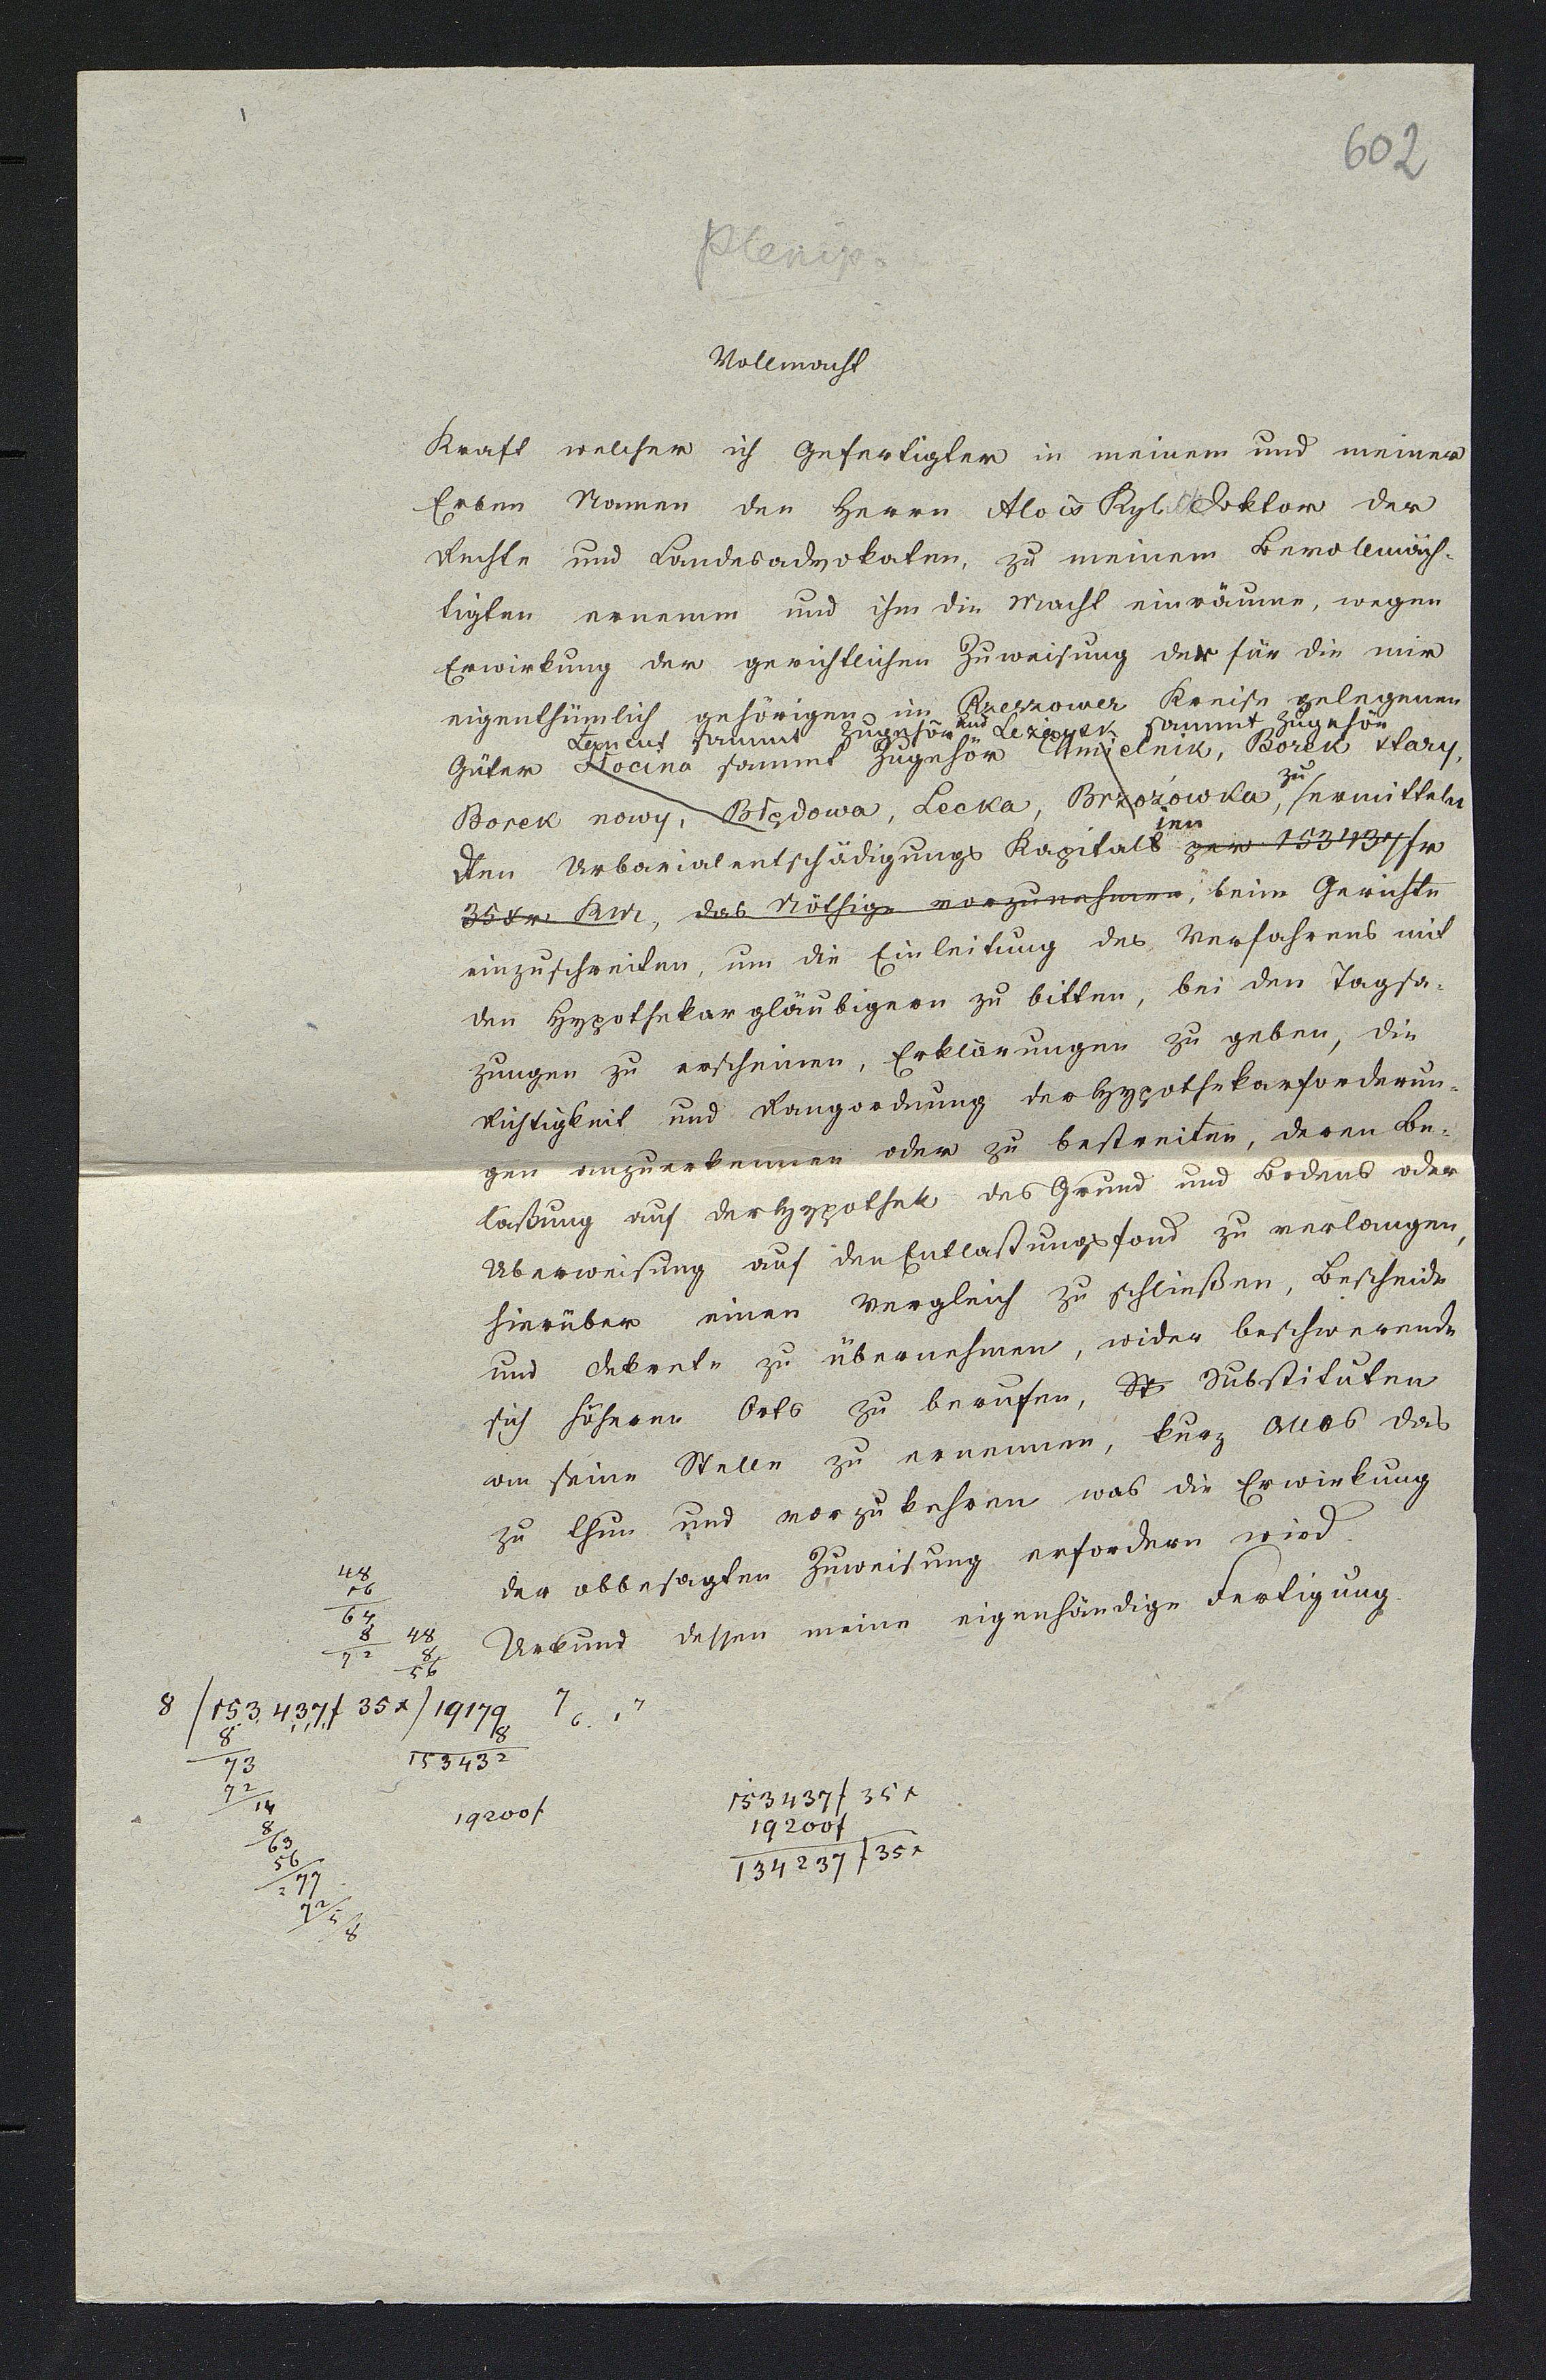 602
Plenip.
Vollmacht
Kraft welcher ich Gefertigter in meinem und meiner
Erben Namen den Herrn Alois Kyl Doktor der
Rechte und Landesadvokaten, zu meinem Bevollmäch-
tigten ernenne und ihm die Macht einräume, wegen
Erwirkung der gerichtlichen Zuweisung der für die mir
eigenthümlich gehörigen im Rzeszower Kreise gelegenen
Łańcut sammt Zugehör und Leżaysk sammt Zugehör
Güter Słocina sammt Zugehör Chmielnik, Borek stary,
Borek nowy, Błędowa, Lecka, Brzozówka, zu ermitteln
den Urbarialentschädigungs Kapitals ien per 153437 fr
35 xr KM, das Nöthige vorzunehmen, beim Gerichte
einzuschreiten, um die Einleitung des Verfahrens mit
den Hypothekargläubigern zu bitten, bei den Tagsa-
zungen zu erscheinen, Erklärungen zu geben, die
Richtigkeit und Rangordnung der Hypothekarforderun-
gen anzuerkennen oder zu bestreiten, deren Be-
laßung auf der Hypothek des Grund und Bodens oder
Überweisung auf den Entlastungsfond zu verlangen,
hierüber einen Vergleich zu schließen, Bescheide
und Dekrete zu übernehmen, wider beschwerende
sich höheren Orts zu berufen, St Substituten
an seine Stelle zu ernennen, kurz alles das
zu thun und vorzukehren was die Erwirkung
der obbesagten Zuweisung erfordern wird.
Urkund dessen meine eigenhändige Fertigung.
48
16
64
8
72
48
8
56
8 / 153,437 f 35 x / 19179
8
73
72
14
8
63
56
77
72
5/8
8
153432
7 6. 17
19200 f
153437 f 35 x
19200 f
134237 f 35 x